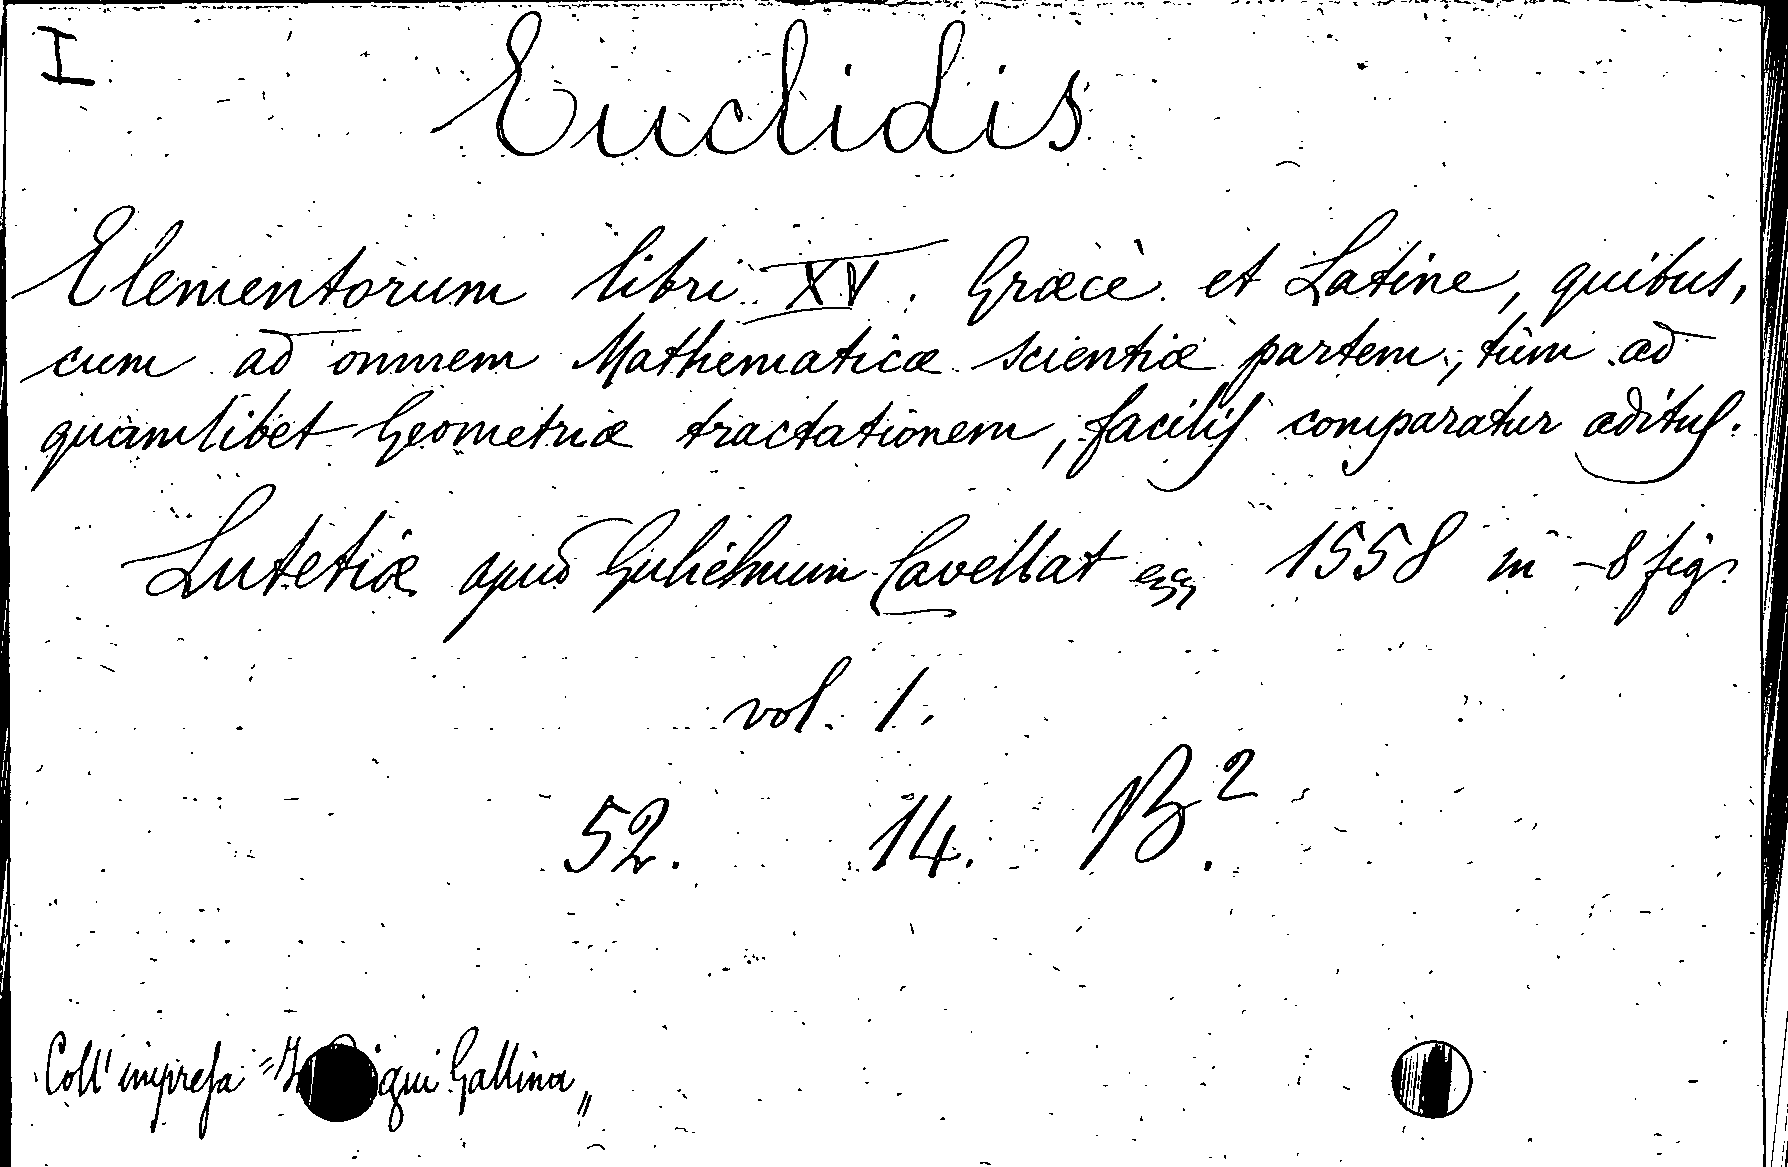 I
Euclidis
Elementorum libri XV. Græcè et Latine, quibus,
cum ad omnem Mathematicæ scientiæ partem, tùm ad
quamlibet Geometriæ tractationem, facilis comparatur aditus.
Lutetiæ apud Gulielmum Cavellat 1558 in -8 fig.
vol. 1.
52. 14. B².
Coll' impresa "In pigui Gallina"